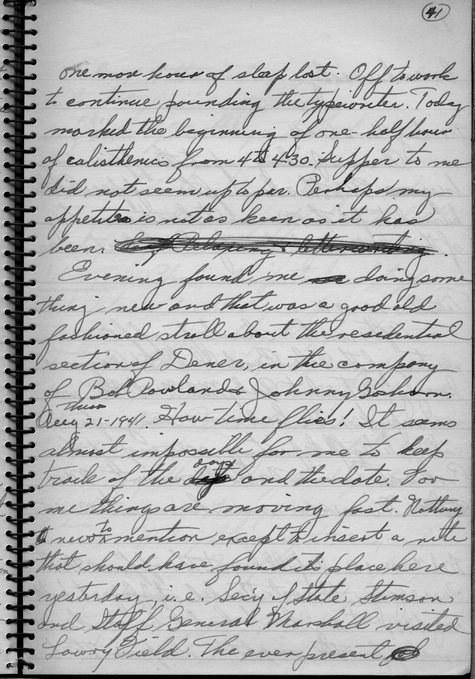 41
one more hour of sleep lost. Off to work
to continue pounding the typewriter. Today
marked the beginning of one-half hour
of calisthenics from 4 to 4:30. Supper to me
did not seem up to par. Perhaps my
appetite is not as keen as it has
been.
Evening found me doing some
thing new and that was a good old
fashioned stroll about the residential
section of Dener, in the company
of Bob Rowland & Johnny Goshorn.
Thur
Aug 21-1941. How time flies! It seems
almost impossible for me to keep
track of the days and the date. For
me things are moving fast. Nothing
new to mention except to insert a note
that should have found its place here
yesterday, i.e. Sec'y of State Stimson
and Staff General Marshall visited
Lowry Field. The ever present